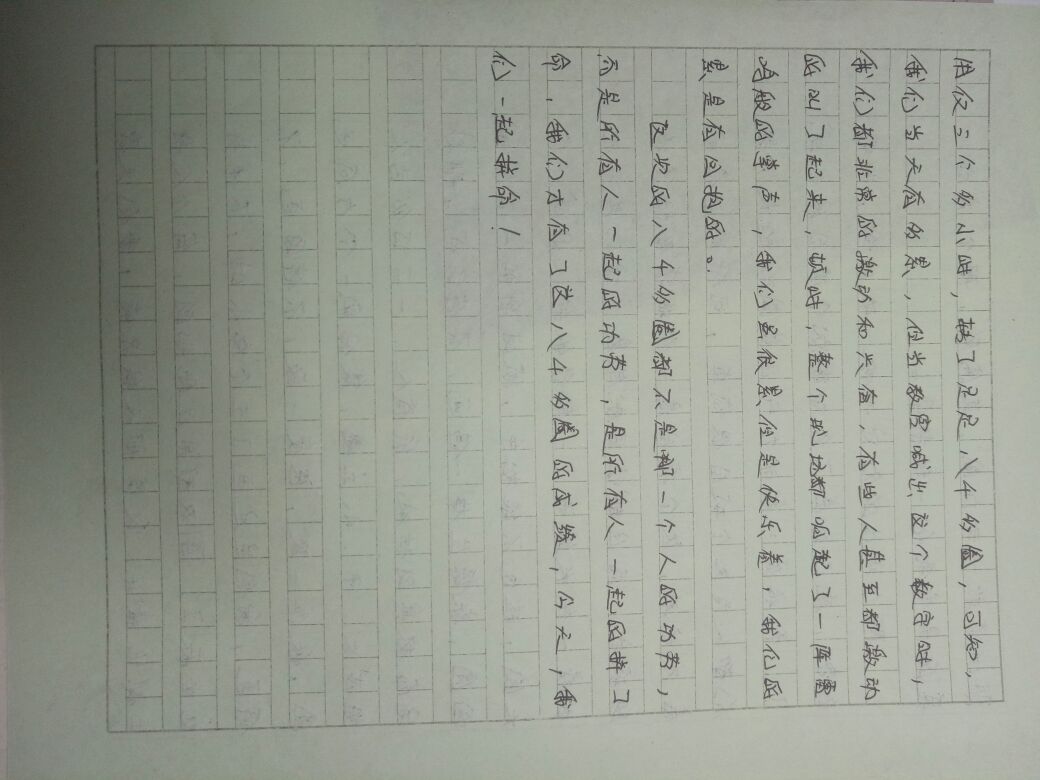 用仅三个多小时，转了足足八4多圈，可知，
我们当天有多累，但当教官喊出这个数字时，
我们都非常的激动和兴奋，有些人甚至都激动
的叫了起来，顿时，整个地场都响起了一阵雷
鸣般的掌声，我们虽很累但是快乐着，我们的
累是有回报的。
这次的八4多圈都不是哪一个人的功劳，
而是所有人一起的功劳，是所有人一起的拼了
命，我们才有了这八4多圈的成绩，今天，我
们一起拼命！